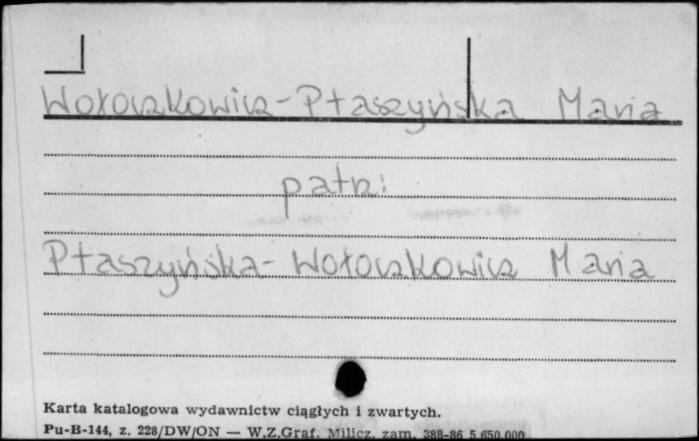 Wołoczkowicz-Ptaszyńska Maria
patrz:
Ptaszyńska-Wołoczkowicz Maria
Karta katalogowa wydawnictw ciągłych i zwartych.
Pu-B-144, z. 228/DW/ON — W.Z.Graf. Milicz, zam. 388-86 5.650.000